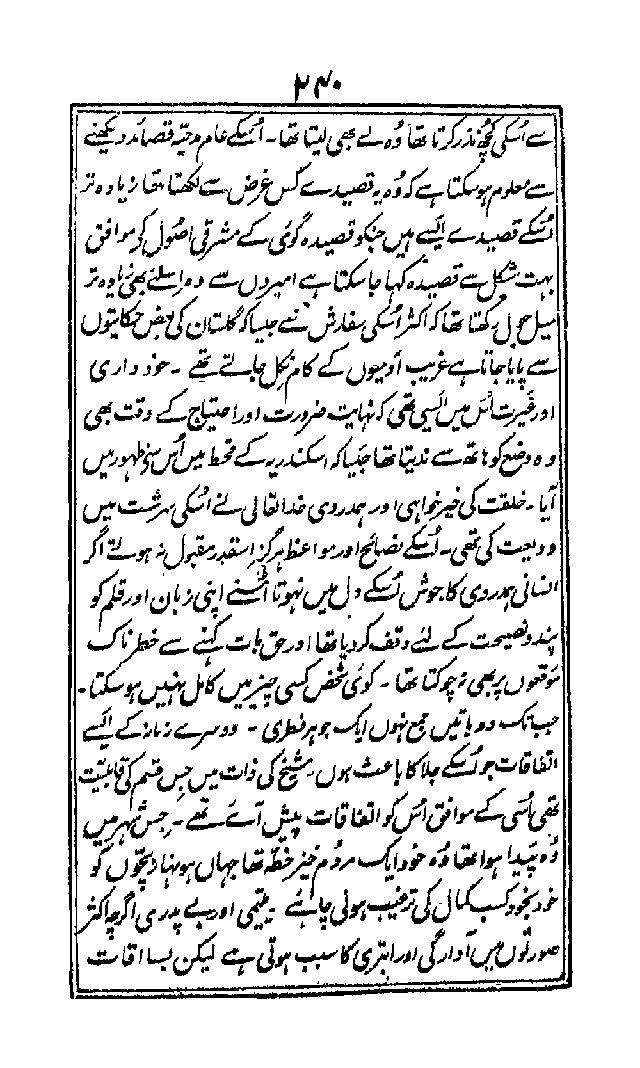 ۲۴۰
سے اُسکی کچھ نذر کرتا تھا وُہ لے بھی لیتا تھا۔ اُسکے عام مدحیہ قصائد دیکھنے
سے معلوم ہو سکتا ہے کہ وُہ یہ قصیدے کس غرض سے لکھتا تھا زیادہ تر
اُسکے قصیدے ایسے ہیں جنکو قصیدہ گوئی کے مشرقی اصُول کے موافق
بہت مشکل سے قصیدہ کہا جا سکتا ہے امیروں سے وہ اسلئے بھی زیادہ تر
میل جول رکھتا تھا کہ اکثر اُسکی سفارش سے جیسا کہ گلستان کی بعض حکایتوں
سے پایا جاتا ہے غریب آدمیوں کے کام نکل جاتے تھے ۔ خود داری
اور غیرت اس میں ایسی تھی کہ نہایت ضرورت اور احتیاج کے وقت بھی
وہ وضع کو ہاتھ سے ندیتا تھا جیسا کہ اسکندریہ کے قحط میں اُس سے ظہور میں
آیا۔ خلقت کی خیر خواہی اور ہمدردی خدا تعالیٰ نے اُسکی سرشت میں
ودیعت کی تھی۔ اُسکے نصائح اور مواعظ ہرگز اسقدر مقبول نہ ہوتے اگر
انسانی ہمدردی کا جوش اُسکے دل میں نہوتا اُسنے اپنی زبان اور قلم کو
پند و نصیحت کے لئے وقف کر دیا تھا اور حق بات کہنے سے خطرناک
موقعوں پر بھی نہ چوکتا تھا۔ کوئی شخص کسی چیز میں کامل نہیں ہو سکتا۔
جب تک دو باتیں جمع نہوں ایک جوہر فطری ۔ دوسرے زمانہ کے ایسے
اتفاقات جو اُسکے جلا کا باعث ہوں۔ شیخ کی ذات میں جس قسم کی قابلیّت
تھی اُسی کے موافق اُس کو اتفاقات پیش آئے تھے ۔ جس شہر میں
وُہ پَیدا ہوا تھا وُہ خود ایک مردُم خیز خطّہ تھا جہاں ہونہار بچّوں کو
خود بخود کسب کمال کی ترغیب ہونی چاہئے ۔ یتیمی اور بے پدری اگرچہ اکثر
صورتوں میں آوارگی اور ابتری کا سبب ہوتی ہے لیکن بسا اوقات